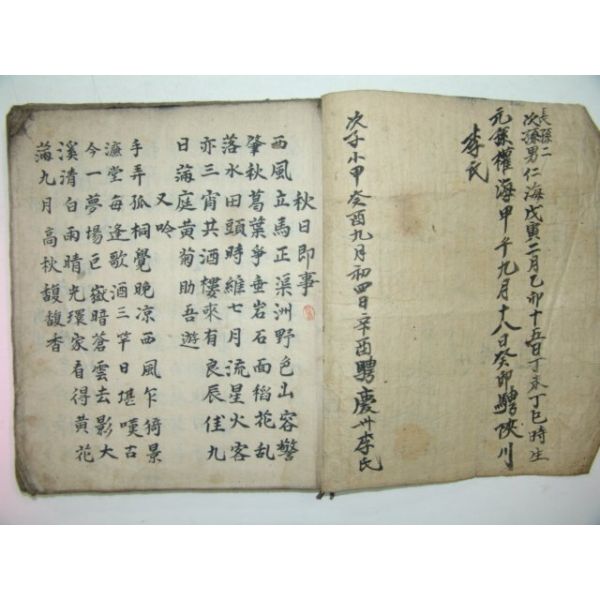 長孫二
次孫男仁海戊寅二月乙卯十五日丁未丁巳時生
元孫權海甲午九月十八日癸卯聘陜川
李氏
次子小甲癸酉九月初四日辛酉聘慶州李氏
秋日即事
西風立馬正渠洲野色山容警
肇秋葛葉爭垂岩石面稻花乱
落水田頭時維七月流星火客
亦三宵共酒樓來有良辰佳九
日滿庭黄菊助吾遊
又吟
手弄孤桐覺晚凉西風乍猗景
濂堂每逢歌酒三竿日堪嘆古
今一夢場巨嶽暗蒼雲去影大
溪清白雨晴光環家看得黄花
滿九月高秋馥馥香